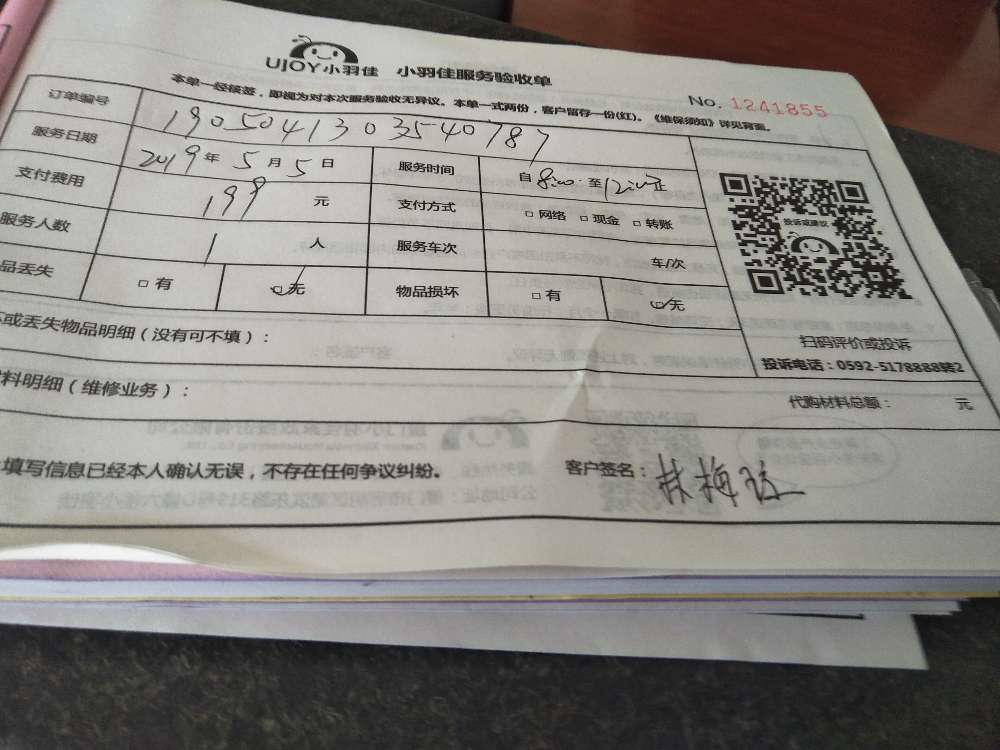 UJOY小羽佳 小羽佳服务验收单
No. 1241855
本单一经核签，即视为对本次服务验收无异议。本单一式两份，客户留存一份(红)。《维保须知》详见背面。
订单编号 1905041303540787
服务日期 2019年5月5日 服务时间 自8:00至12:00止
支付费用 199元 支付方式 □网络 □现金 □转账
服务人数 1人 服务车次 车/次
品丢失 □有 □无 物品损坏 □有 □无
投诉或建议
扫码评价或投诉
投诉电话：0592-5178888转2
或丢失物品明细（没有可不填）：
料明细（维修业务）： 代购材料总额： 元
填写信息已经本人确认无误，不存在任何争议纠纷。 客户签名：林梅